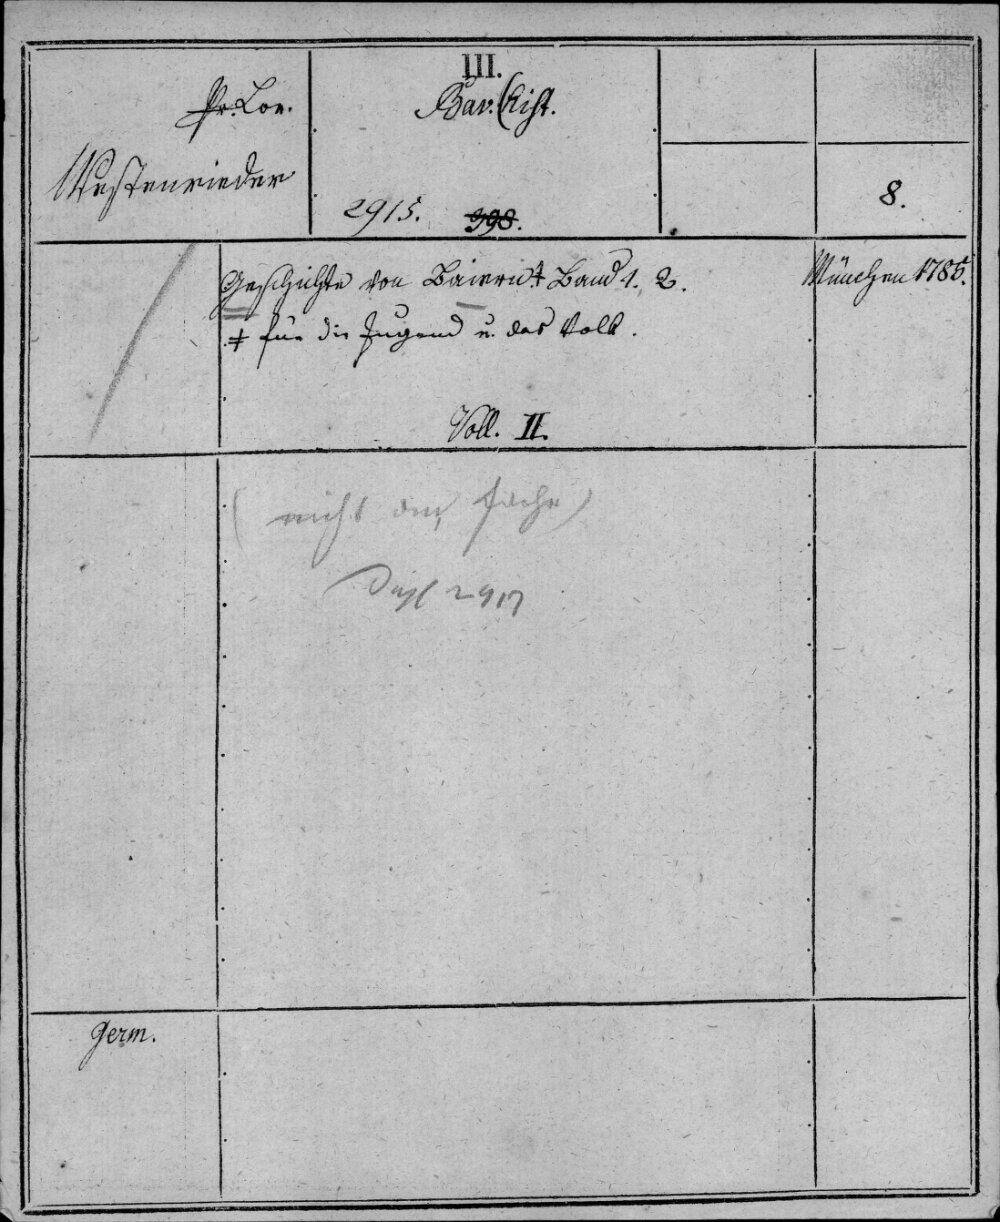 III.
Bav. Hist.
Pr. Lor.
Westenrieder
2915. 398.
8.
Geschichte von Baiern ‡ Band 1. 2.
München 1785.
‡ für die Jugend u. das Volk.
Voll. II.
(nicht am Fache)
2917
Germ.